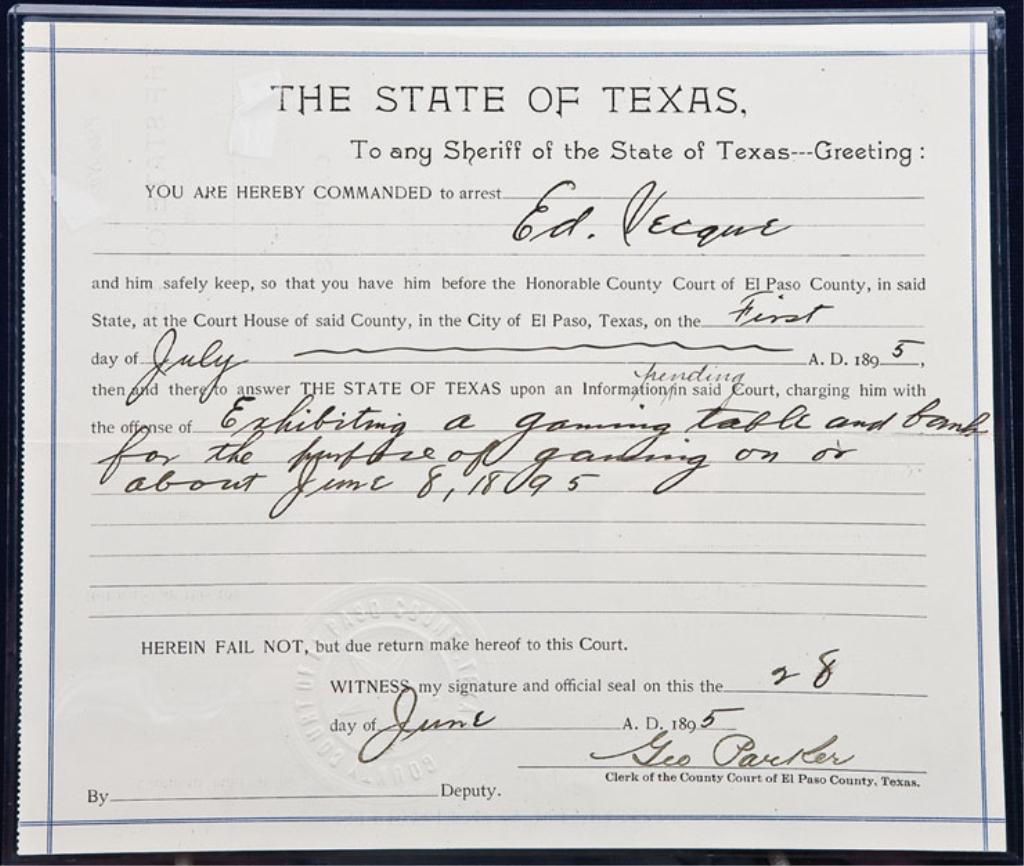 THE STATE OF TEXAS,
To any Sheriff of the State of Texas---Greeting:
YOU ARE HEREBY COMMANDED to arrest
Ed. Vecque
and him safely keep, so that you have him before the Honorable County Court of El Paso County, in said
State, at the Court House of said County, in the City of El Paso, Texas, on the First
day of July A. D. 1895,
pending
then and there to answer THE STATE OF TEXAS upon an Information in said Court, charging him with
the offense of Exhibiting a gaming table and bank
for the purpose of gaming on or
about June 8, 1895
HEREIN FAIL NOT, but due return make hereof to this Court.
WITNESS my signature and official seal on this the 28
day of June A. D. 1895
Geo Parker
Clerk of the County Court of El Paso County, Texas.
By Deputy.